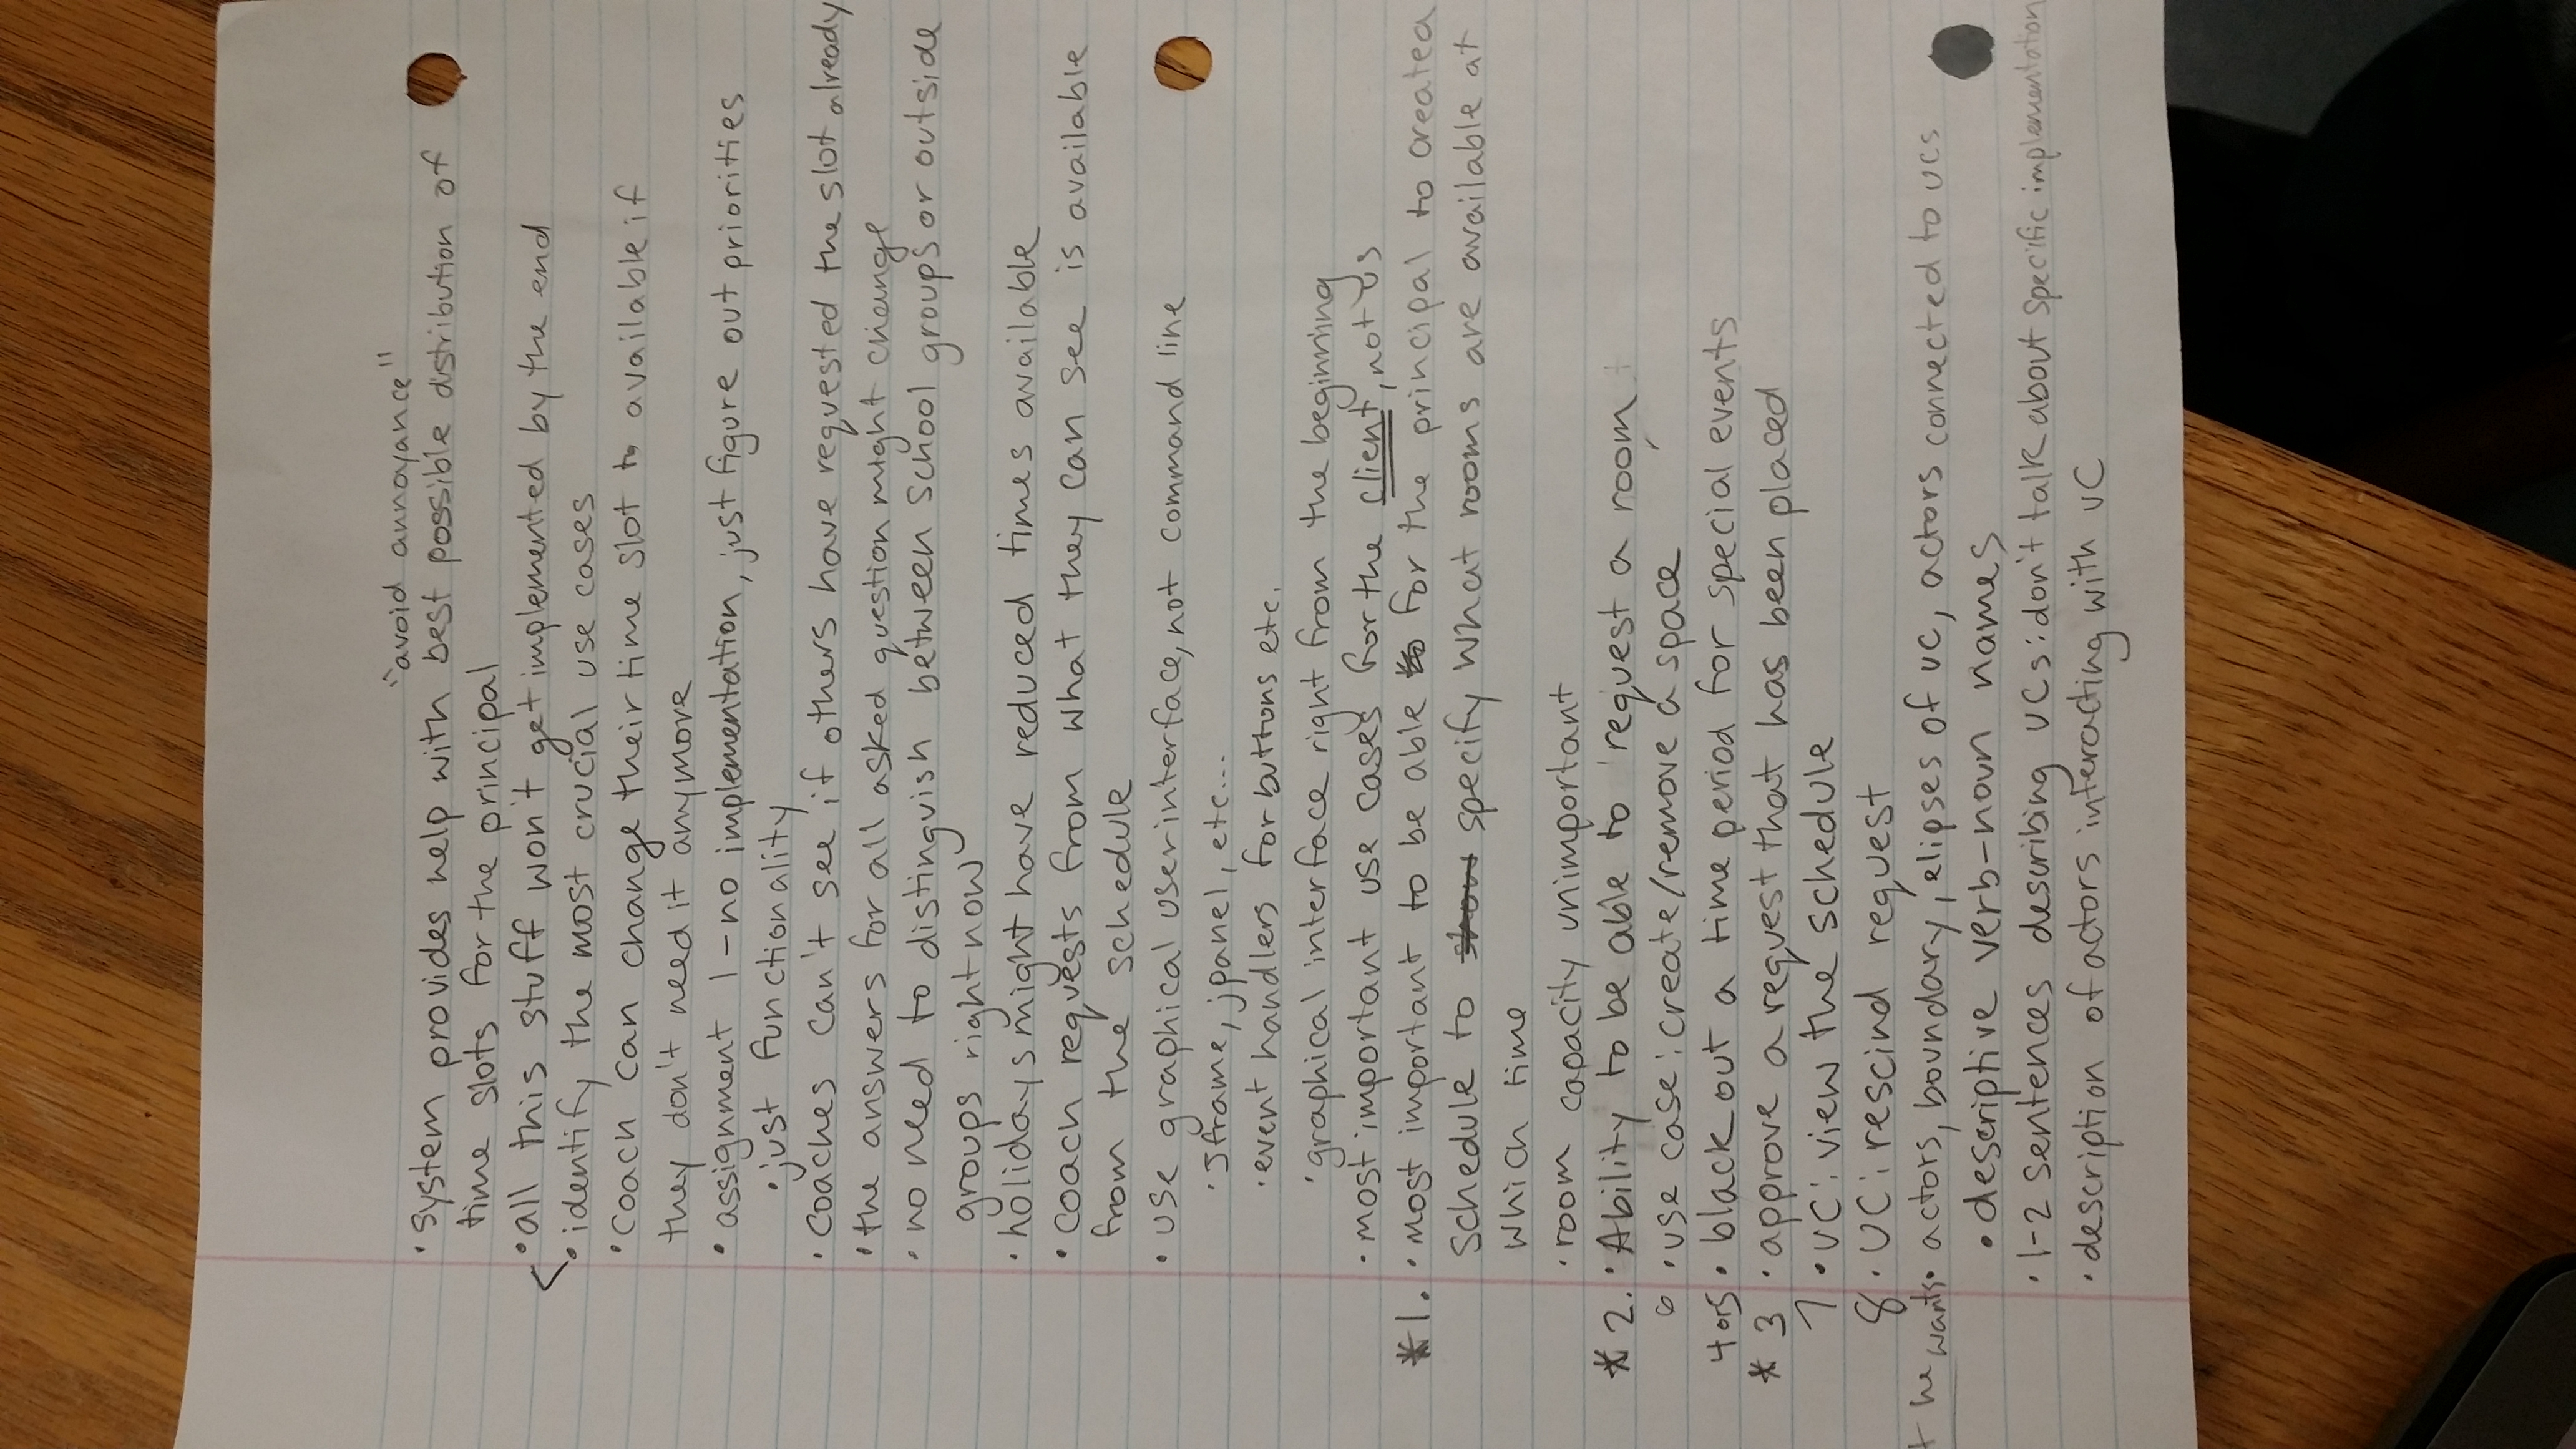 "avoid annoyance"
• system provides help with best possible distribution of
time slots for the principal
< • all this stuff won't get implemented by the end
• identify the most crucial use cases
• coach can change their time slot to available if
they don't need it anymore
• assignment 1 – no implementation, just figure out priorities
• just functionality
• coaches can't see if others have requested the slot already
• the answers for all asked question might change
• no need to distinguish between school groups or outside
groups right now
• holidays might have reduced times available
• coach requests from what they can see is available
from the schedule
• use graphical user interface, not command line
• Jframe, jpanel, etc...
• event handlers for buttons etc.
• graphical interface right from the beginning
• most important use cases for the client, not us
*1. • most important to be able to for the principal to create a
schedule to show specify what rooms are available at
which time
• room capacity unimportant
*2. • Ability to be able to request a room
6 • use case: create/remove a space
4 or 5 • black out a time period for special events
*3 • approve a request that has been placed
7 • UC: view the schedule
8 • UC: rescind request
he wants • actors, boundary, elipses of UC, actors connected to UCs
• descriptive verb-noun names
• 1-2 sentences describing UCs: don't talk about specific implementation
• description of actors interacting with UC